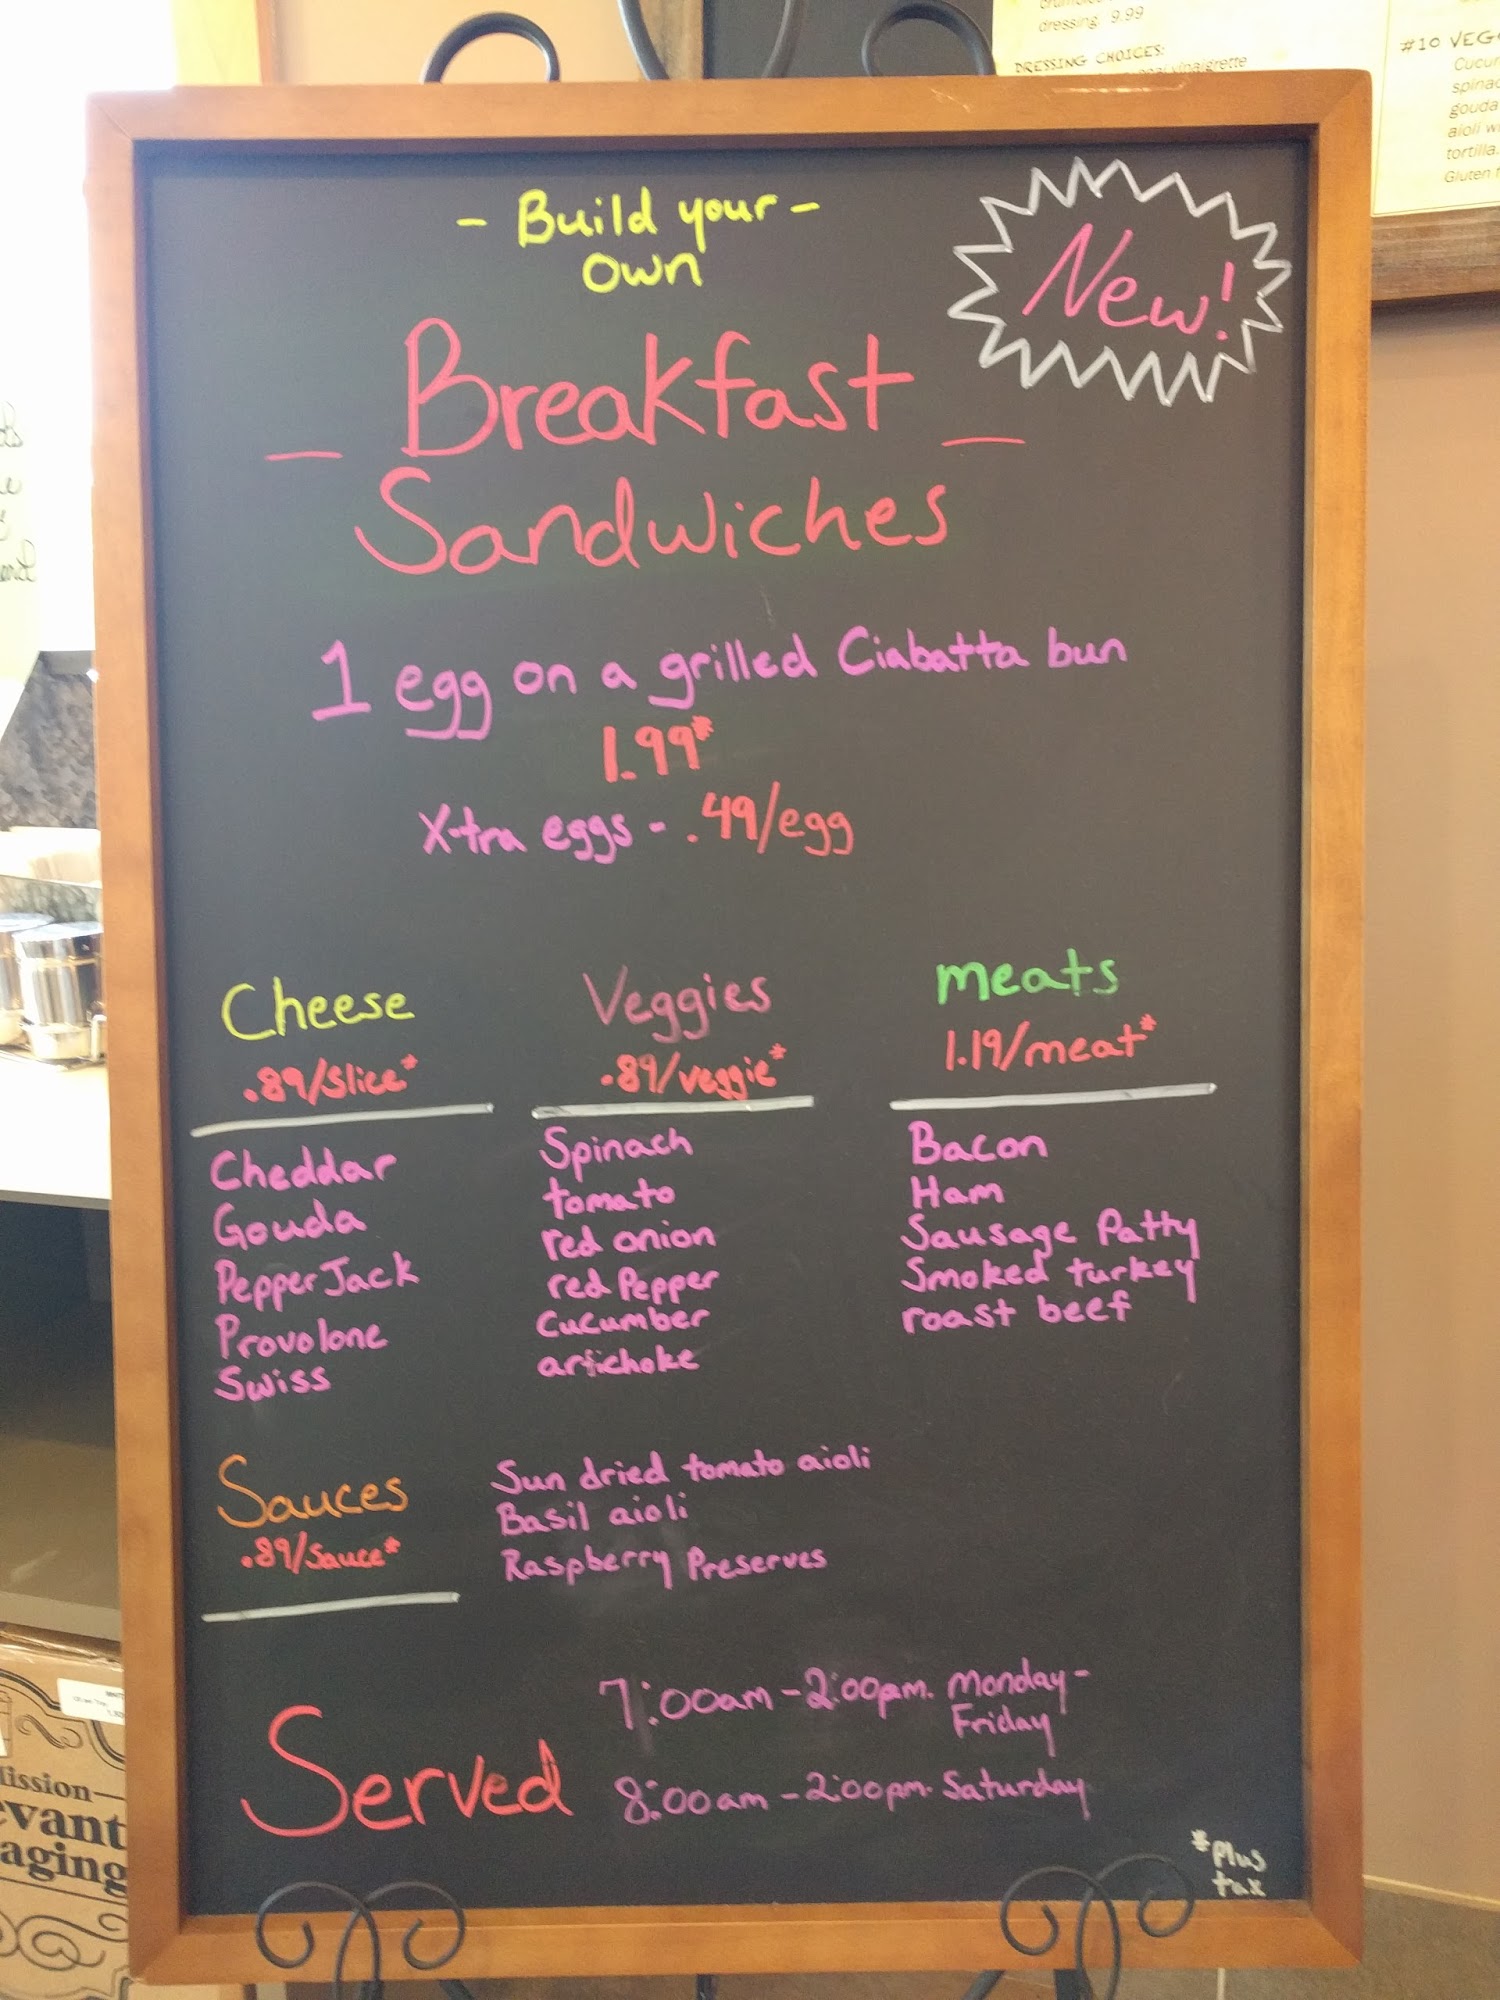 crumbled
dressing. 9.99
DRESSING CHOICES:
vinaigrette
#10 VEGG
Cucum
spinac
gouda
aioli w
tortilla.
Gluten f
- Build your -
Own
New!
_ Breakfast _
Sandwiches
1 egg on a grilled Ciabatta bun
1.99*
X-tra eggs - .49/egg
Cheese
.89/slice*
Cheddar
Gouda
Pepper Jack
Provolone
Swiss
Veggies
.89/veggie*
Spinach
tomato
red onion
red Pepper
Cucumber
artichoke
meats
1.19/meat*
Bacon
Ham
Sausage Patty
Smoked turkey
roast beef
Sauces
.89/sauce*
Sun dried tomato aioli
Basil aioli
Raspberry Preserves
Served
7:00am - 2:00pm. Monday -
Friday
8:00am - 2:00pm. Saturday
*Plus
tax
ission
evant
aging